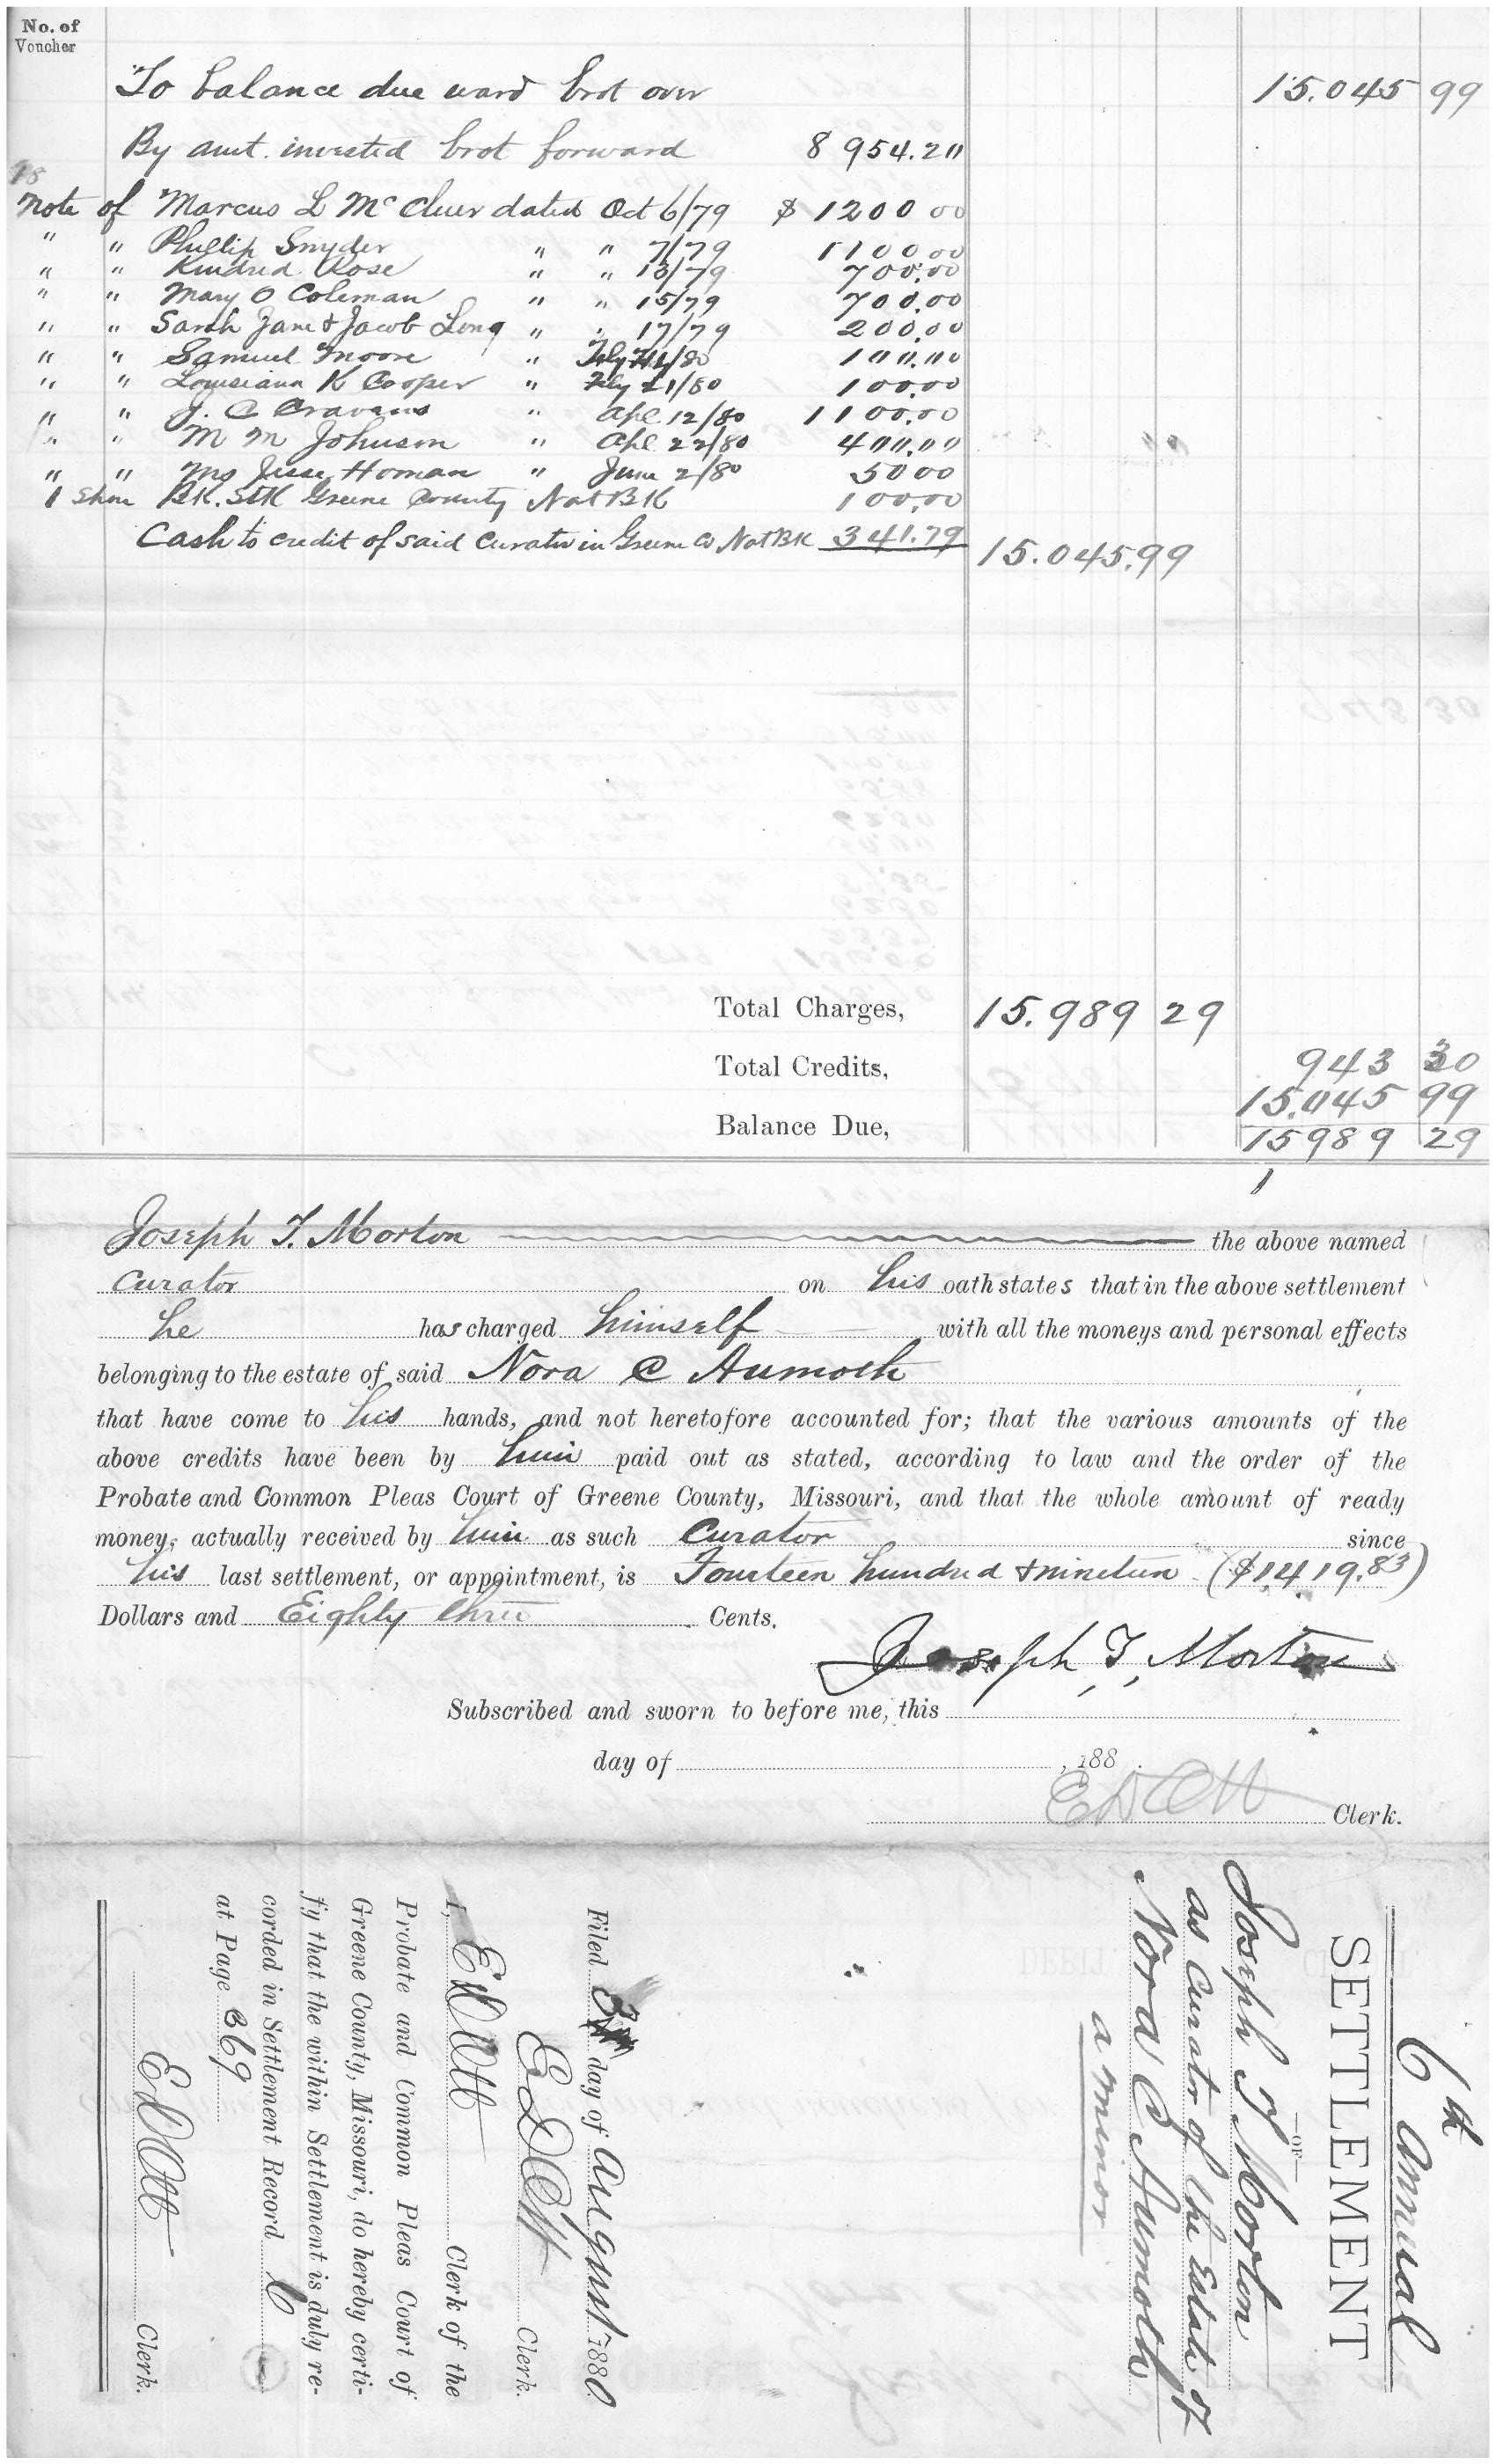 No. of
Voucher
To balance due ward brot over 15.045 99
By amt. invested brot forward 8 954.20
98
Note of Marcus L McCluer dated Oct 6/79 $ 1200 00
" " Phillip Snyder " " 7/79 1100 00
" " Kindred Rose " " 13/79 700.00
" " Mary O Coleman " " 15/79 700.00
" " Sarah Jane & Jacob Long " " 17/79 200.00
" " Samuel Moore " /80 100.00
" " Louisiana K Cooper " Feby 21/80 100.00
" " J. C Cravens " Apl 12/80 1100.00
" " M M Johnson " Apl 22/80 400.00
" " Jesse Homan " June 2/80 50 00
1 Share Bk. Stk Greene County Nat BK 100.00
Cash to credit of said Curator in Greene Co Nat BK 341.79 15.045.99
Total Charges, 15.989 29
Total Credits, 943 30
15.045 99
Balance Due, 15989 29
Joseph T. Morton the above named
Curator on his oath states that in the above settlement
he has charged himself with all the moneys and personal effects
belonging to the estate of said Nora C Aumoth
that have come to his hands, and not heretofore accounted for; that the various amounts of the
above credits have been by him paid out as stated, according to law and the order of the
Probate and Common Pleas Court of Greene County, Missouri, and that the whole amount of ready
money, actually received by him as such Curator since
his last settlement, or appointment, is Fourteen hundred & nineteen ($1419.83)
Dollars and Eighty three Cents.
Joseph T. Morton
Subscribed and sworn to before me, this
day of , 188 .
E D Ott Clerk.
6th Annual
SETTLEMENT
—OF—
Joseph T Morton
as Curator of the Estate of
Nora C Aumoth
a minor
Filed day of August 1880.
E D Ott Clerk.
I, E D Ott Clerk of the
Probate and Common Pleas Court of
Greene County, Missouri, do hereby certi-
fy that the within Settlement is duly re-
corded in Settlement Record
at Page 369
E D Ott Clerk.